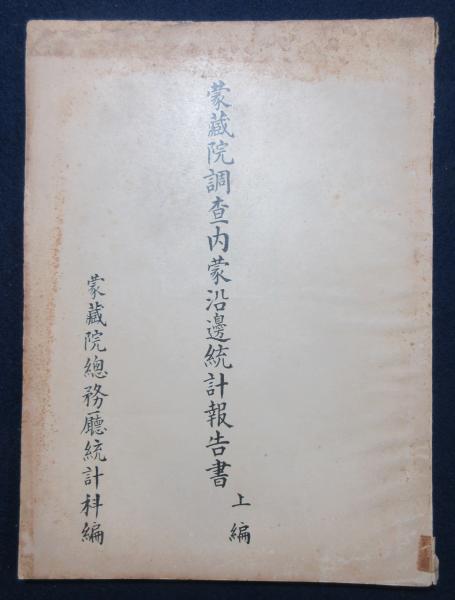 蒙藏院調查內蒙沿邊統計報告書 上編
蒙藏院總務廳統計科編